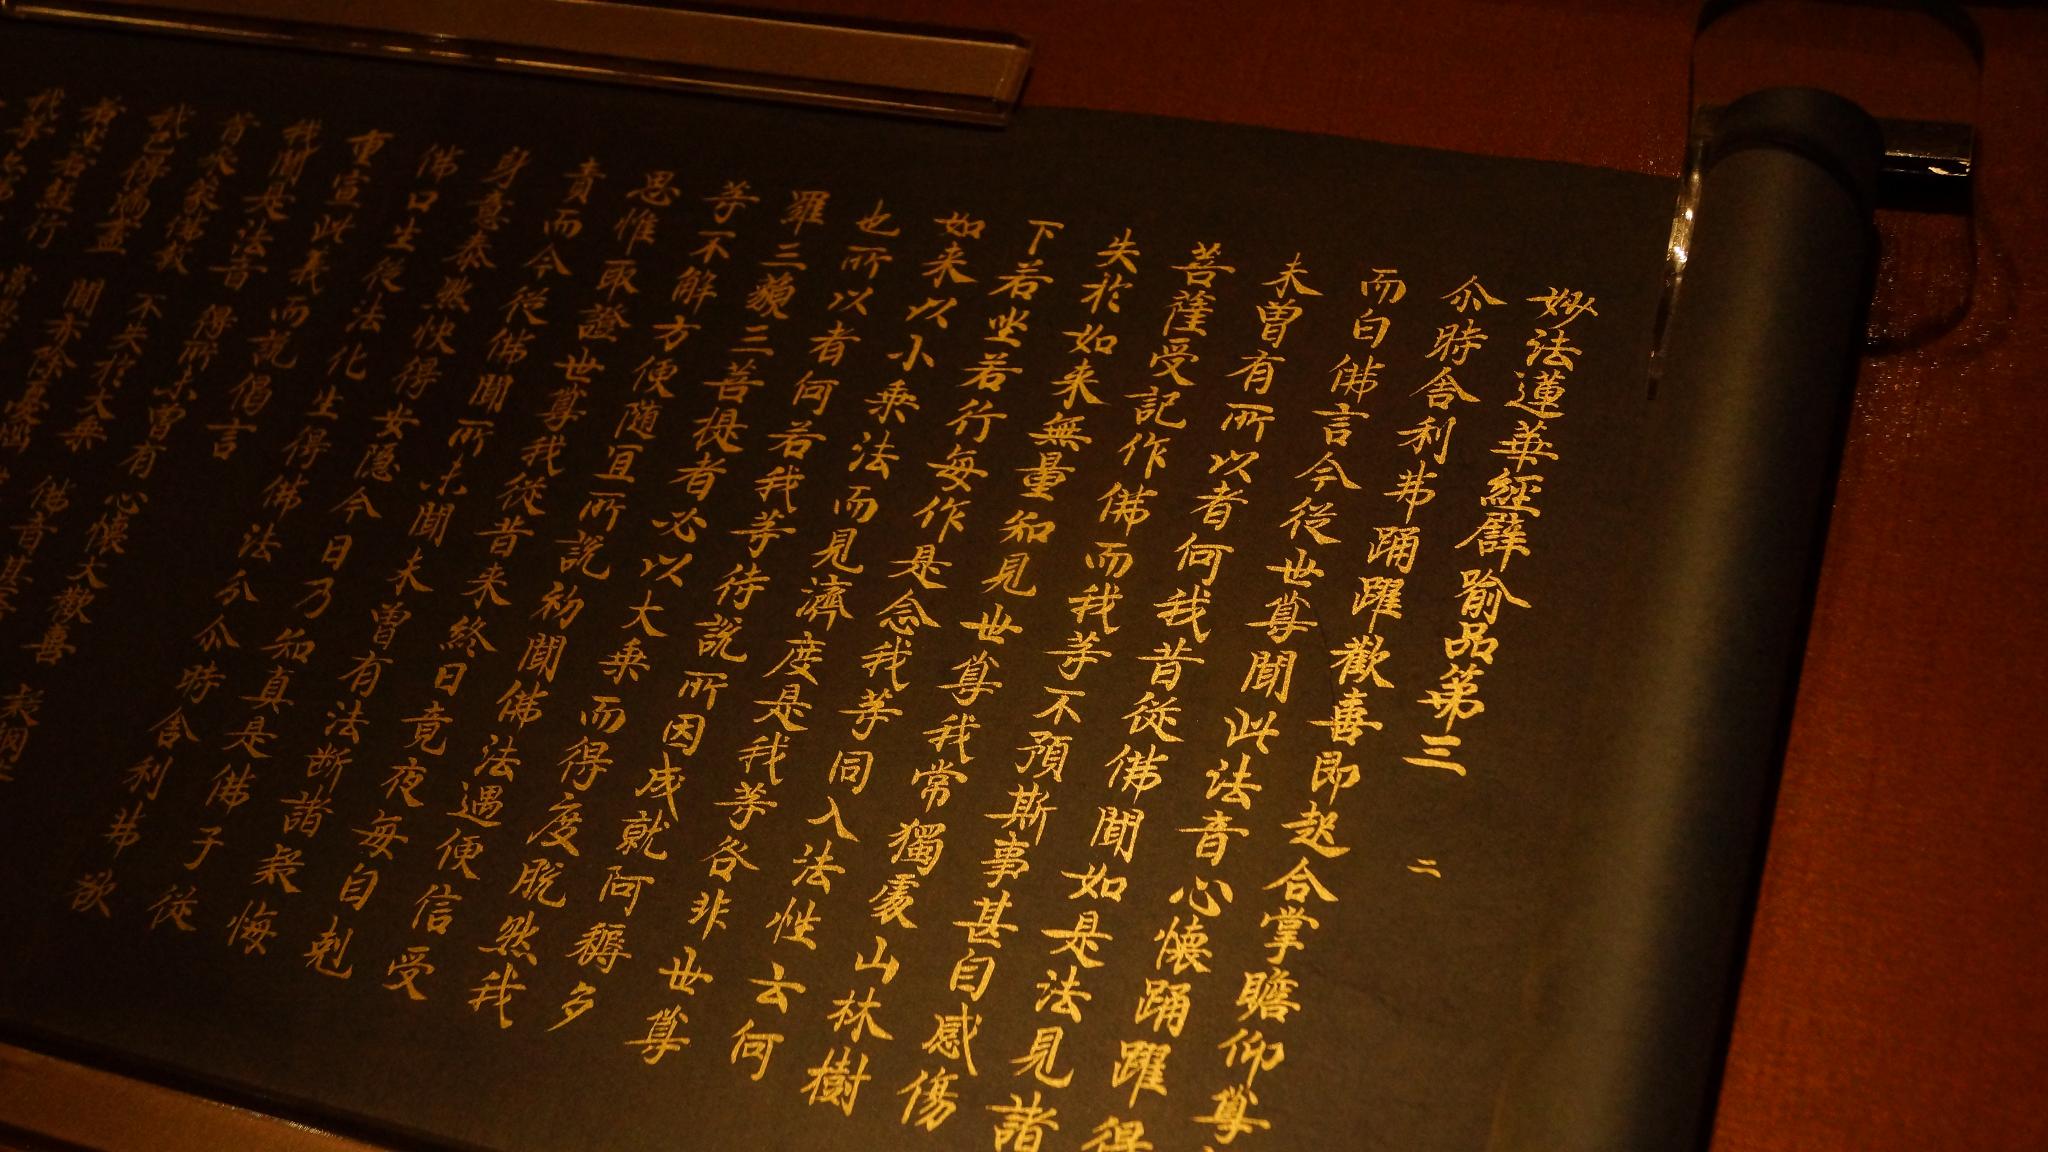 妙法蓮華經譬喻品第三 二
尒時舍利弗踊躍歡喜即起合掌瞻仰尊
而白佛言今從世尊聞此法音心懷踊躍得
未曾有所以者何我昔從佛聞如是法見諸
菩薩受記作佛而我等不預斯事甚自感傷
失於如来無量知見世尊我常獨處山林樹
下若坐若行每作是念我等同入法性云何
如来以小乘法而見濟度是我等咎非世尊
也所以者何若我等待說所因成就阿耨多
羅三藐三菩提者必以大乘而得度脫然我
等不解方便随宜所說初聞佛法遇便信受
思惟取證世尊我從昔来終日竟夜每自剋
責而今從佛聞所未聞未曾有法断諸疑悔
身意泰然快得安隱今日乃知真是佛子從
佛口生從法化生得佛法分尒時舍利弗欲
重宣此義而說偈言
我聞是法音 得所未曾有 心懷大歡喜 疑網
昔来蒙佛教 不失於大乘 佛音甚
聞亦除憂惱